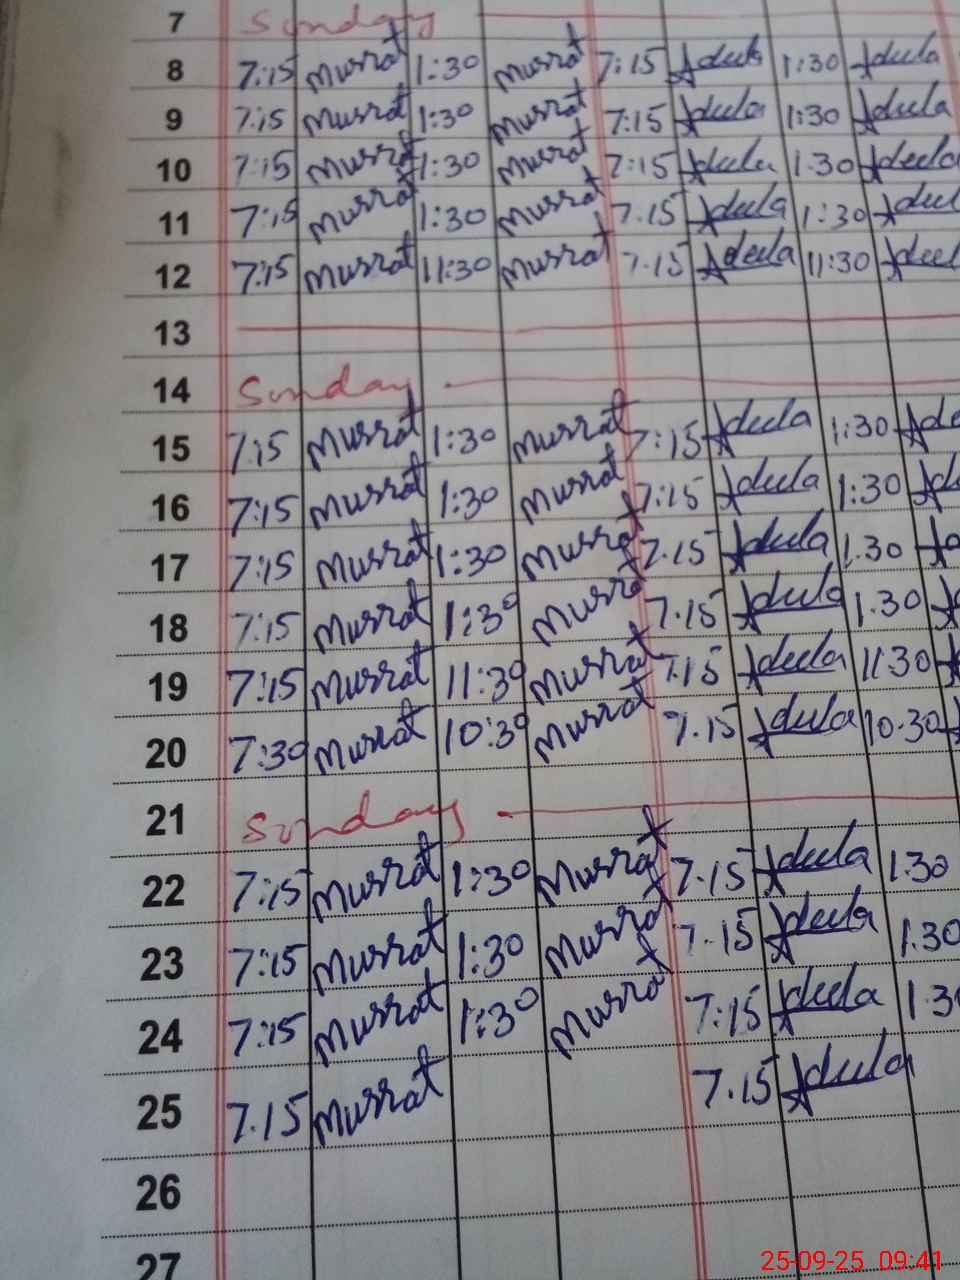 7 Sunday
8 7:15 Musrat 1:30 Musrat 7:15 Adula 1:30 Adula
9 7:15 Musrat 1:30 Musrat 7:15 Adula 1:30 Adula
10 7:15 Musrat 1:30 Musrat 7:15 Adula 1.30 Adula
11 7:15 Musrat 1:30 Musrat 7.15 Adula 1:30 Adul
12 7:15 Musrat 11:30 Musrat 7.15 Adula 11:30 Adul
13
14 Sunday
15 7:15 Musrat 1:30 Musrat 7:15 Adula 1:30 Adu
16 7:15 Musrat 1:30 Musrat 7:15 Adula 1:30 Ad
17 7:15 Musrat 1:30 Musrat 7.15 Adula 1.30
18 7:15 Musrat 1:30 Musrat 7.15 Adula 1.30
19 7:15 Musrat 11:30 Musrat 7.15 Adula 11:30
20 7:30 Musrat 10:30 Musrat 7.15 Adula 10.30
21 Sunday
22 7:15 Musrat 1:30 Musrat 7.15 Adula 1.30
23 7:15 Musrat 1:30 Musrat 7.15 Adula 1.30
24 7:15 Musrat 1:30 Musrat 7:15 Adula 1.3
25 7.15 Musrat 7.15 Adula
26
27
25-09-25 09:41